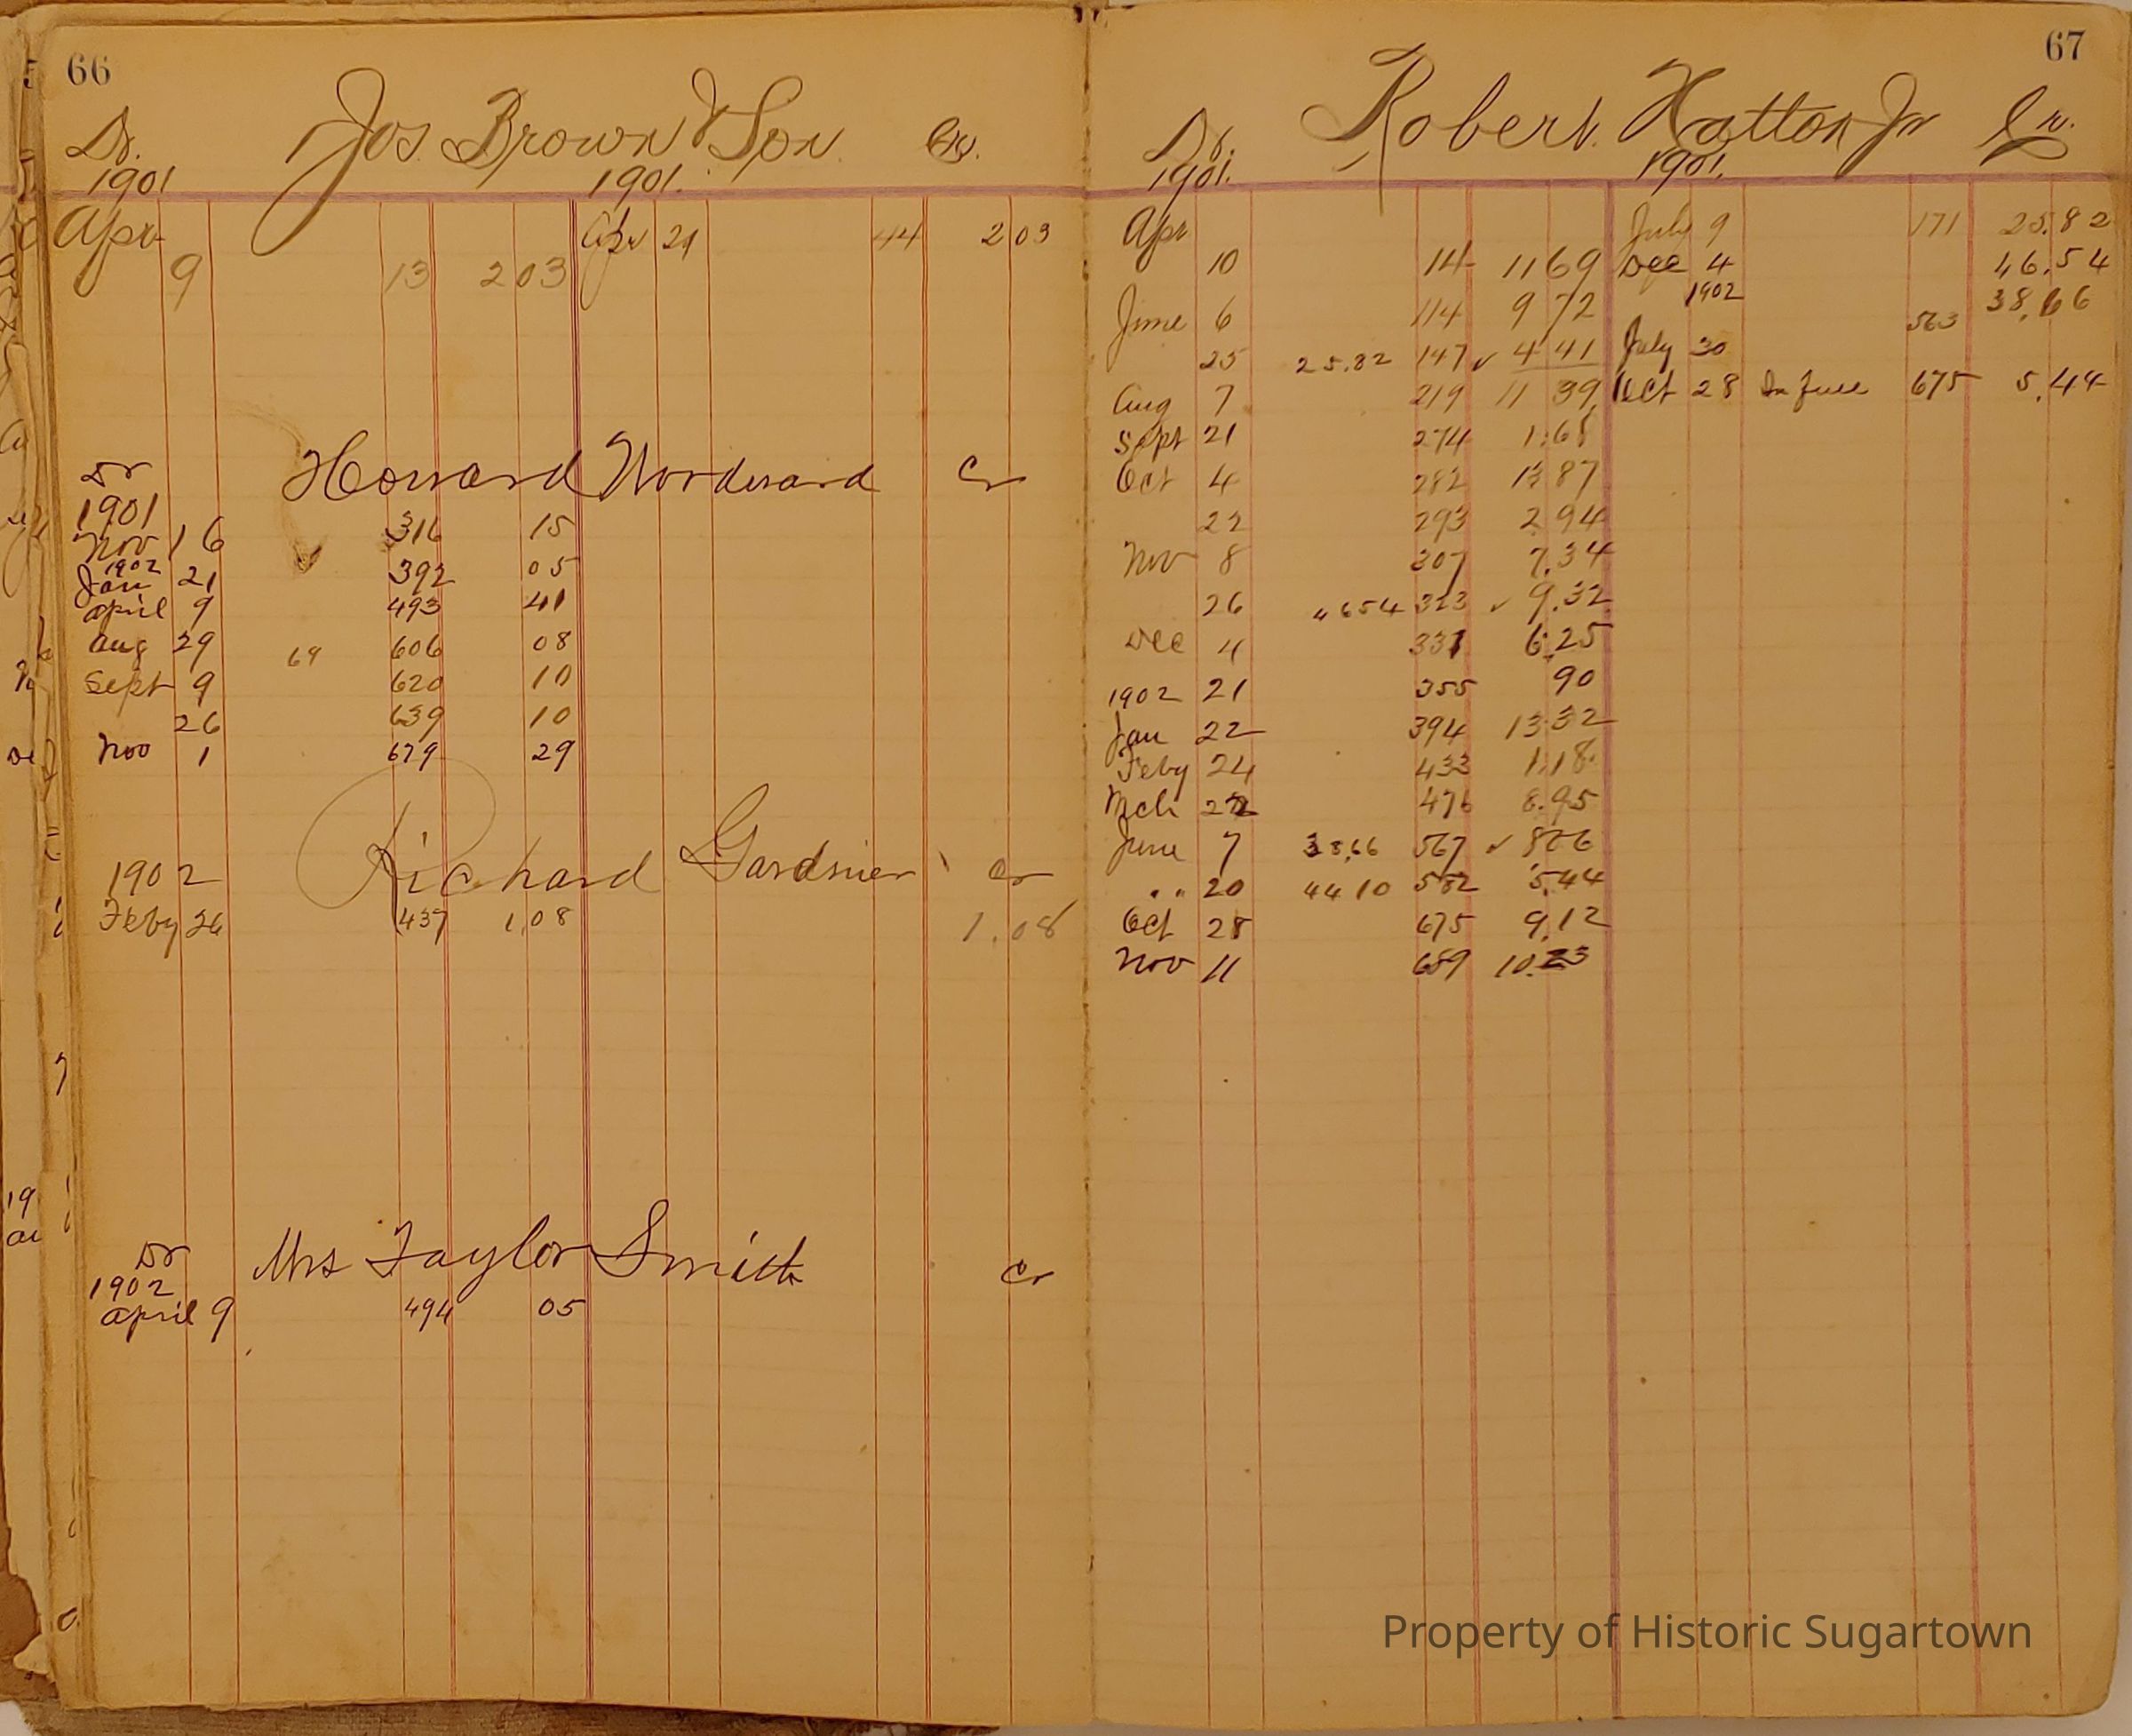 66
Dr. Jos Brown & Son Cr.
1901 1901.
Apr Apr 21 44 2 03
9 13 2 03
Dr Howard Woodward Cr
1901
Nov 16 316 15
1902
Jan 21 392 05
April 9 493 41
Aug 29 69 606 08
Sept 9 620 10
26 639 10
Nov 1 679 29
1902 Richard Gardner Cr
Feby 26 437 1,08 1.08
Dr Mrs Taylor Smith Cr
1902
April 9 494 05
67
Dr. Robert Hatton Jr Cr.
1901. 1901.
Apr July 9 171 25.82
10 14 11 69 Dec 4 46.54
1902 38.66
June 6 114 9 72 563
25 25.82 147 ✓ 4 41 July 30
Aug 7 219 11 39 Oct 28 In full 675 5.44
Sept 21 274 1.68
Oct 4 282 13 87
22 293 2 94
Nov 8 307 7.34
26 4654 323 ✓ 9.32
Dec 4 331 6.25
1902 21 355 90
Jan 22 394 13 32
Feby 24 433 1.18
Mch 22 476 8.95
June 7 38,66 567 ✓ 806
" 20 44 10 582 5.44
Oct 28 675 9.12
Nov 11 689 10.23
Property of Historic Sugartown